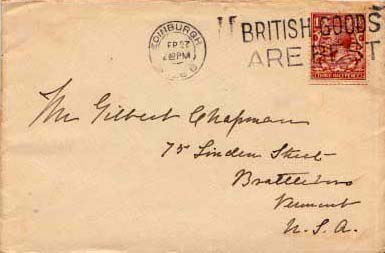 EDINBURGH
BRITISH GOODS
ARE BEST
THREE HALFPENCE
Mr Gilbert Chapman
75 Linden Street
Brattleboro
Vermont
U.S.A.